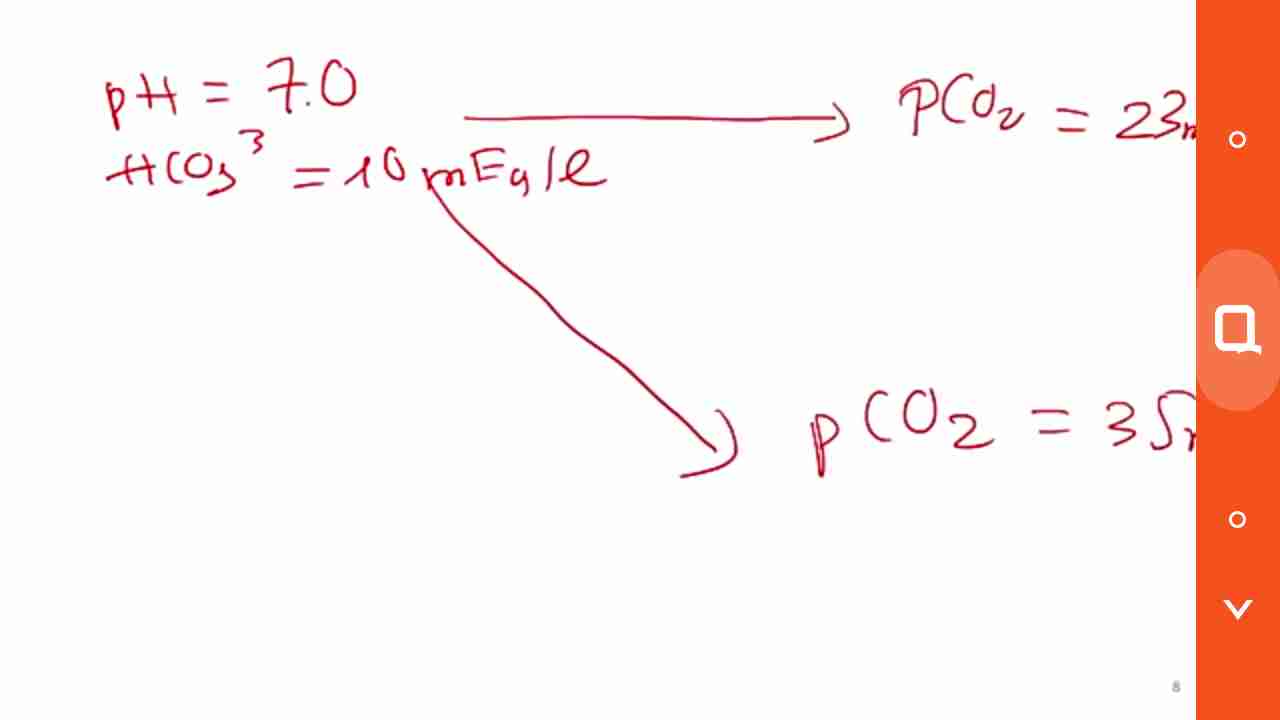 pH = 7.0
HCO3³ = 10 mEq/l
PCO2 = 23m
pCO2 = 35m
8